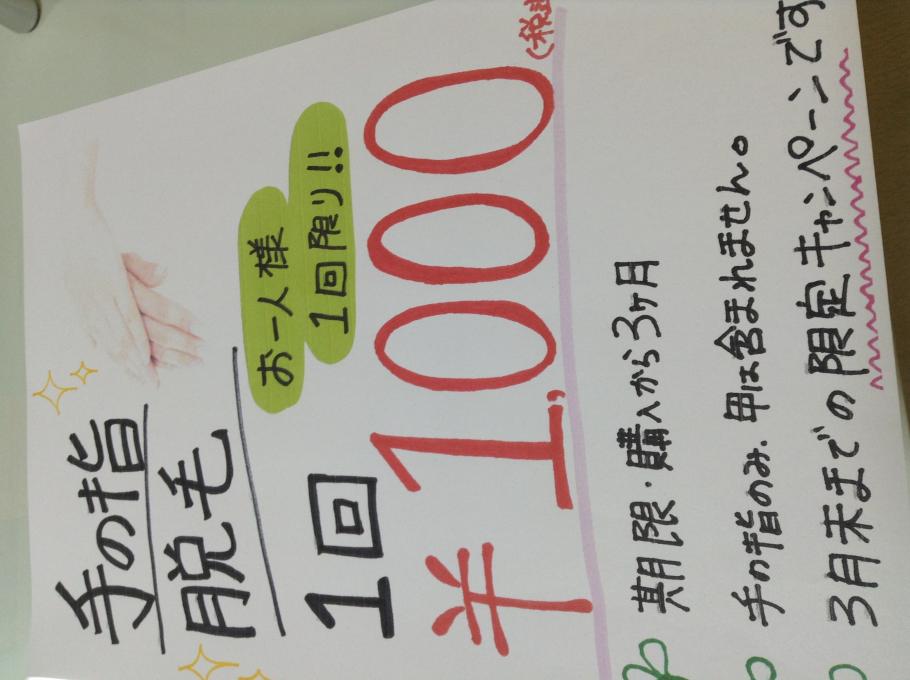 手の指
脱毛
お一人様
1回限り!!
1回
¥1,000
(税込
期限・購入から3ヶ月
手の指のみ。甲は含まれません。
3月末までの限定キャンペーンです